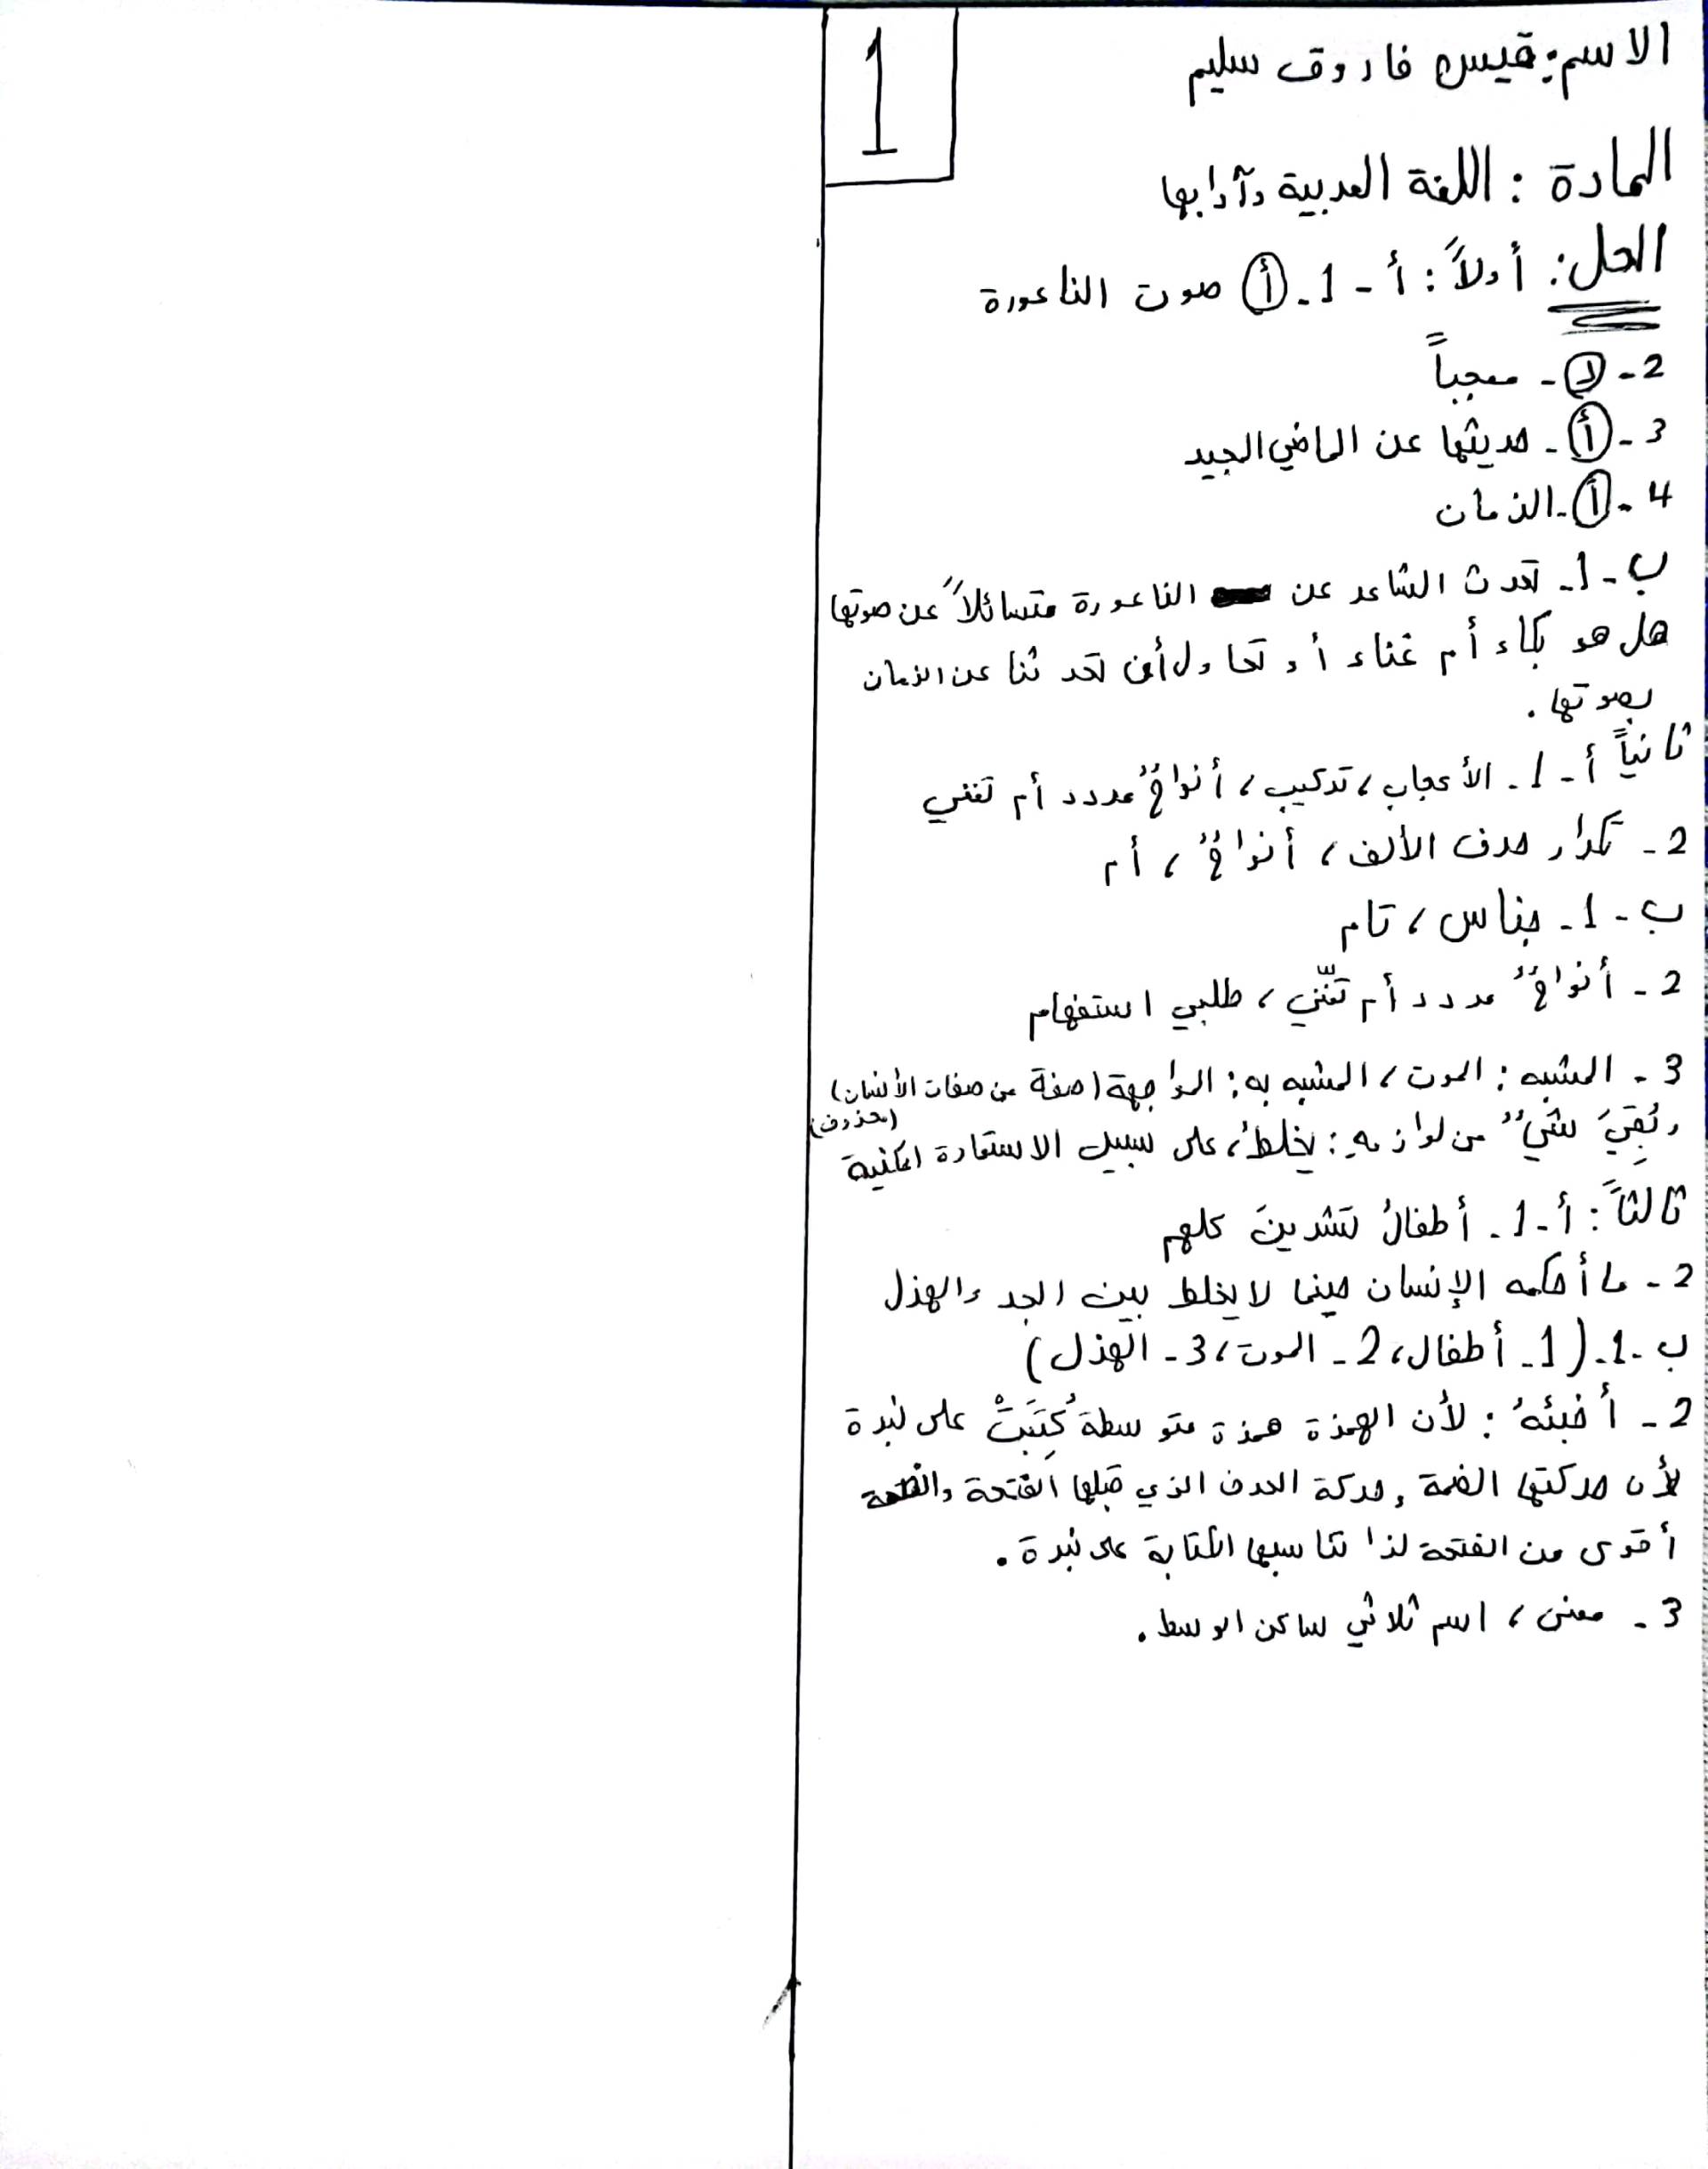 1
الاسم: قيس فاروق سليم
المادة : اللغة العربية وآدابها
الحل: أولاً: أ - 1 - أ صوت الناعورة
2 - د - معجباً
3 - أ - حديثها عن الماضي الجيد
4 - أ - الزمان
ب - 1 - تحدث الشاعر عن الناعورة متسائلاً عن صوتها
هل هو بكاء أم غناء أو تحاول أن تحدثنا عن الزمان
بصوتها .
ثانياً أ - 1 - الأعجاب ، تركيب ، أنواحٌ عددد أم تغني
2 - تكرار حرف الألف ، أنواحٌ ، أم
ب - 1 - جناس ، تام
2 - أنواحٌ عددد أم تغنّي ، طلبي استفهام
3 - المشبه : الموت ، المشبه به : المواجهة (صفة من صفات الأنسان)
(محذوف)
وبُقِيَ شيءٌ من لوازمهِ : يخلطُ ، على سبيل الاستعارة المكنية
ثالثاً : أ - 1 - أطفالُ تشرينَ كلهم
2 - ما أحكمه الإنسان حينما لا يخلط بين الجد والهزل
ب - 1 - (1 - أطفال ، 2 - الموت ، 3 - الهزل )
2 - أخبئهُ : لأن الهمزة همزة متوسطة كُتِبَتْ على نبرة
لأن حركتها الضمة وحركة الحرف الذي قبلها الفتحة
أقوى من الفتحة لذا تناسبها الكتابة على نبرة .
3 - معنى ، اسم ثلاثي ساكن الوسط .